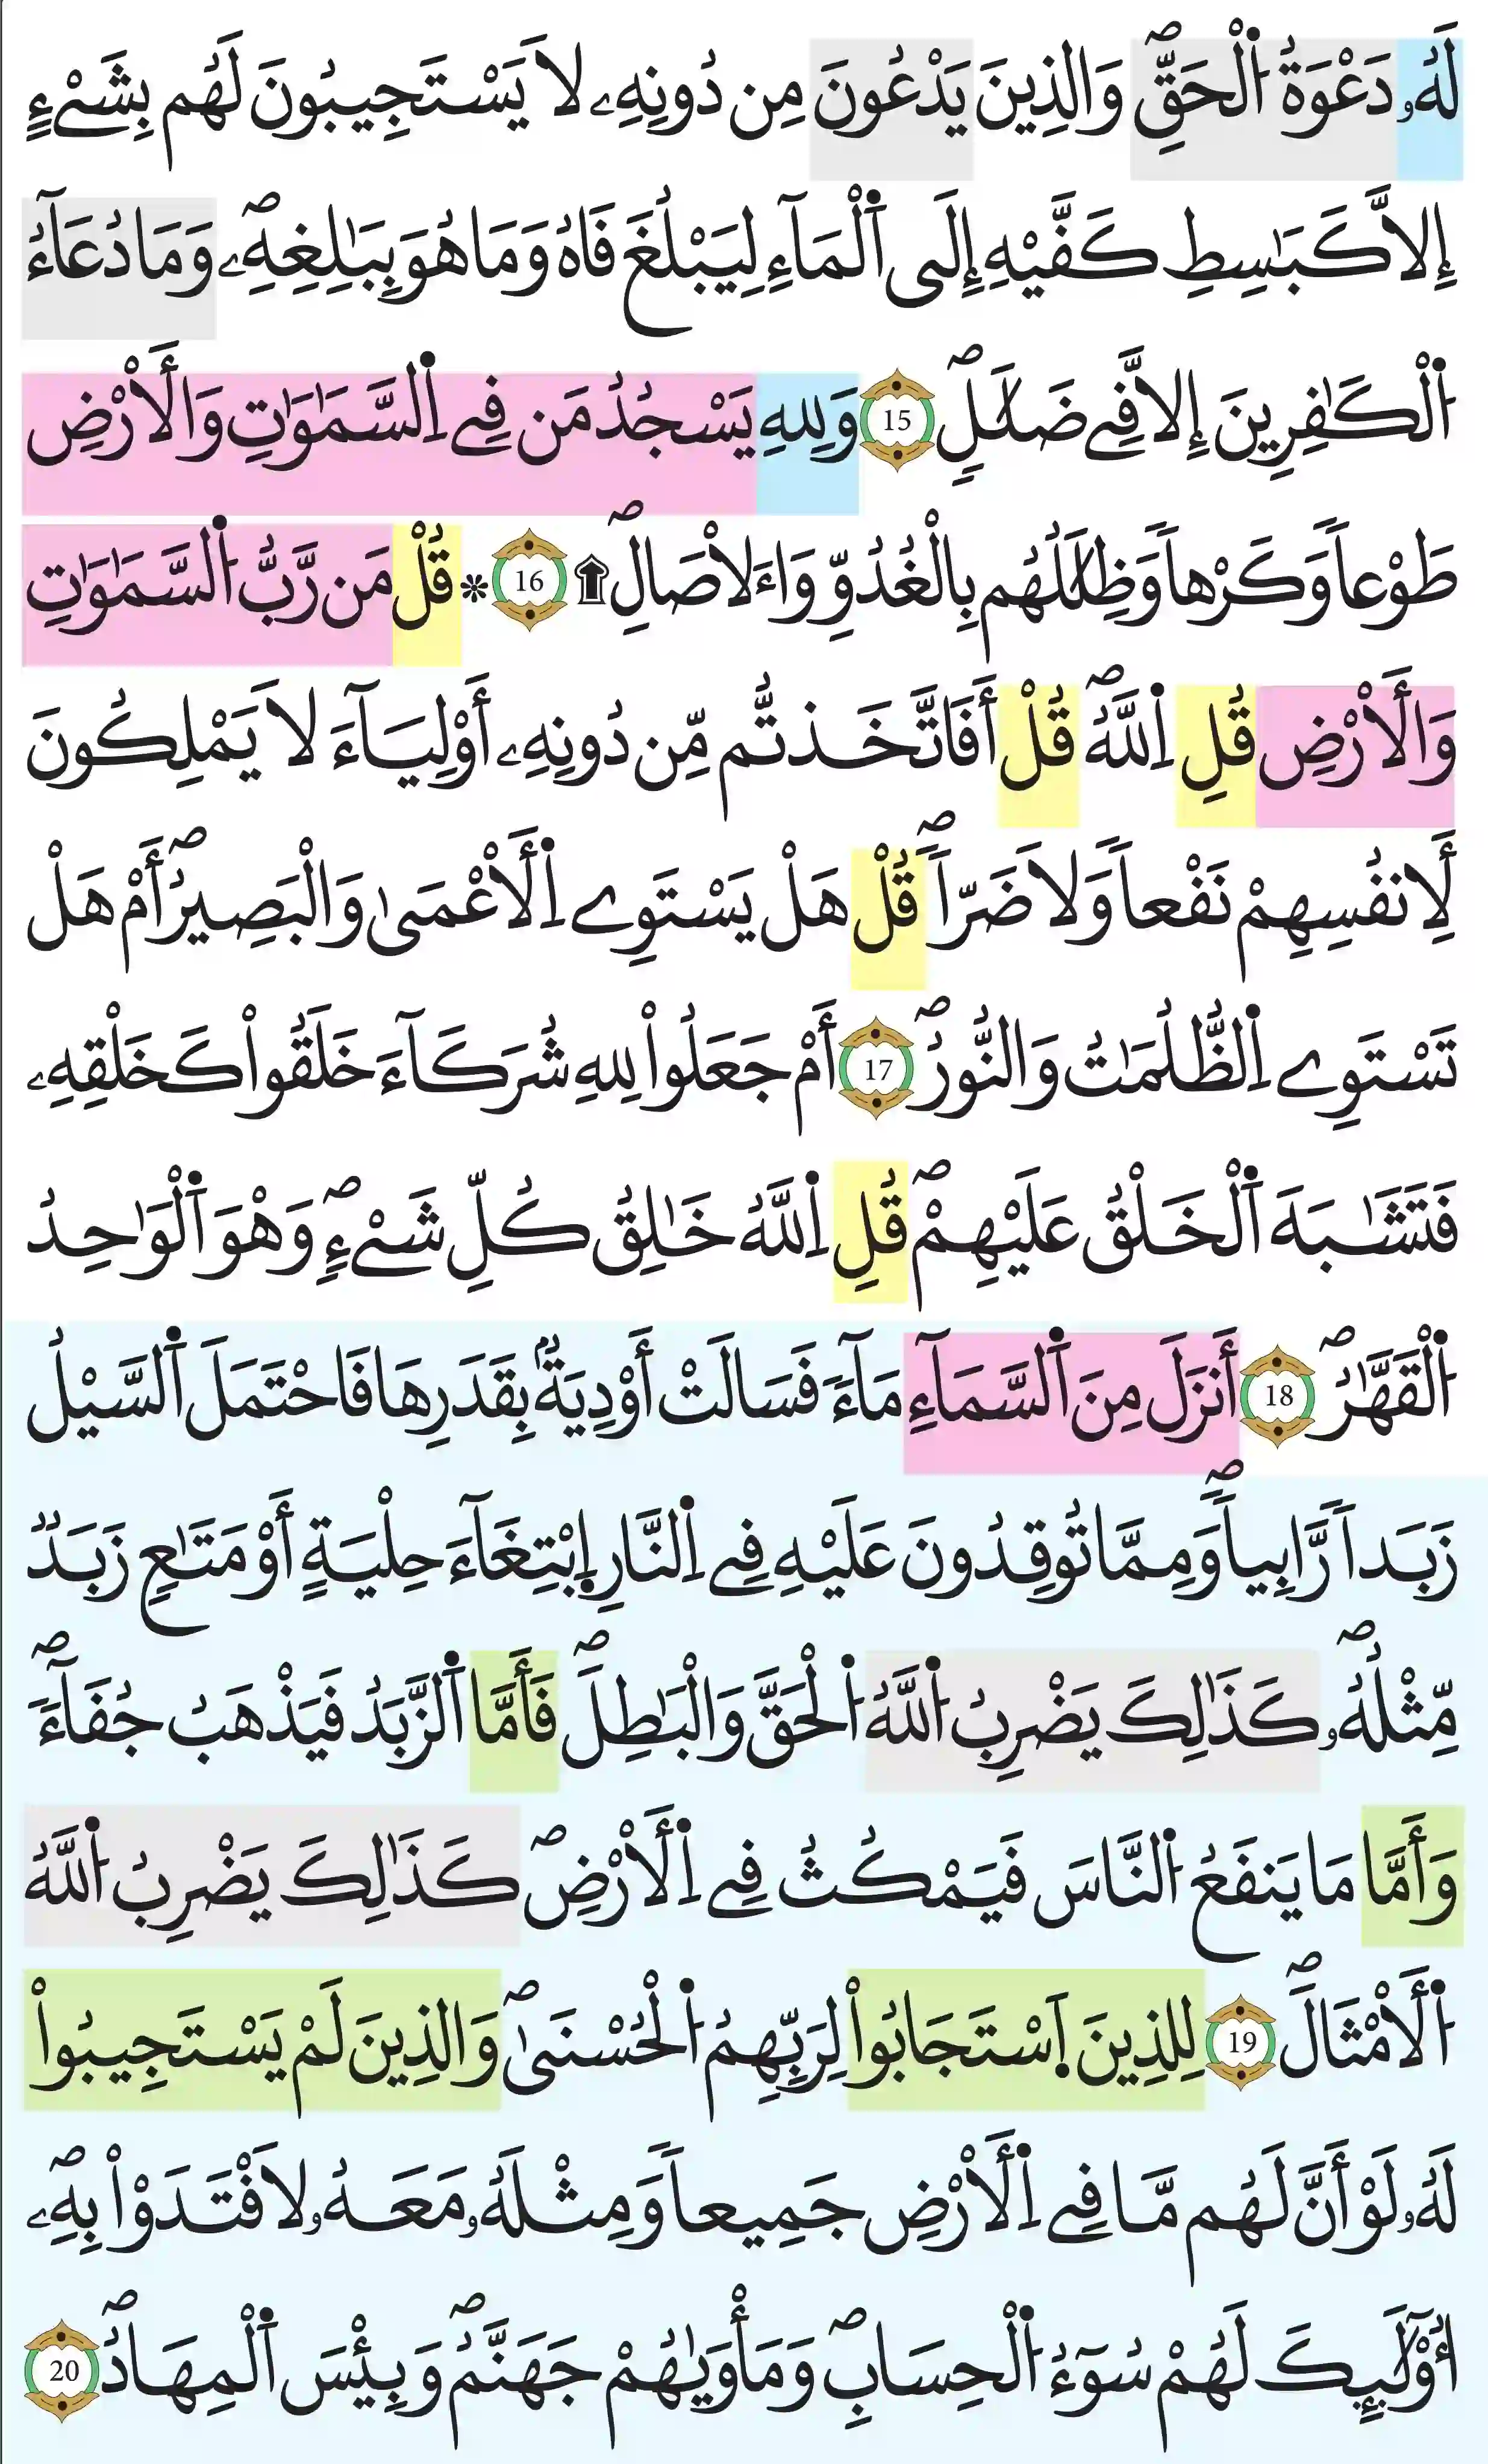 لَهُۥ دَعْوَةُ اُ۬لْحَقِّۖ وَالذِينَ يَدْعُونَ مِن دُونِهِۦ لَا يَسْتَجِيبُونَ لَهُم بِشَےْءٍ
إِلَّا كَبَٰسِطِ كَفَّيْهِ إِلَى اَ۬لْمَآءِ لِيَبْلُغَ فَاهُ وَمَا هُوَ بِبَٰلِغِهِۦۖ وَمَا دُعَآءُ
اُ۬لْكَٰفِرِينَ إِلَّا فِے ضَلَٰلٍۖ 15 وَلِلهِ يَسْجُدُ مَن فِے اِ۬لسَّمَٰوَٰتِ وَالَارْضِ
طَوْعاٗ وَكَرْهاٗ وَظِلَٰلُهُم بِالْغُدُوِّ وَاءَلَاصَالِۖ ۩ 16 ۞ قُلْ مَن رَّبُّ اُ۬لسَّمَٰوَٰتِ
وَالَارْضِ قُلِ اِ۬للَّهُۖ قُلْ أَفَاتَّخَذتُّم مِّن دُونِهِۦ أَوْلِيَآءَ لَا يَمْلِكُونَ
لِأَنفُسِهِمْ نَفْعاٗ وَلَا ضَرّاٗۖ قُلْ هَلْ يَسْتَوِے اِ۬لَاعْمَىٰ وَالْبَصِيرُۖ أَمْ هَلْ
تَسْتَوِے اِ۬لظُّلُمَٰتُ وَالنُّورُۖ 17 أَمْ جَعَلُواْ لِلهِ شُرَكَآءَ خَلَقُواْ كَخَلْقِهِۦ
فَتَشَٰبَهَ اَ۬لْخَلْقُ عَلَيْهِمْۖ قُلِ اِ۬للَّهُ خَٰلِقُ كُلِّ شَےْءٖۖ وَهْوَ اَ۬لْوَٰحِدُ
اُ۬لْقَهَّٰرُۖ 18 أَنزَلَ مِنَ اَ۬لسَّمَآءِ مَآءٗ فَسَالَتْ أَوْدِيَةُۢ بِقَدَرِهَا فَاحْتَمَلَ اَ۬لسَّيْلُ
زَبَداٗ رَّابِياٗۖ وَمِمَّا تُوقِدُونَ عَلَيْهِ فِے اِ۬لنَّارِ اِ۪بْتِغَآءَ حِلْيَةٍ أَوْ مَتَٰعٖ زَبَدٞ
مِّثْلُهُۥۖ كَذَٰلِكَ يَضْرِبُ اُ۬للَّهُ اُ۬لْحَقَّ وَالْبَٰطِلَۖ فَأَمَّا اَ۬لزَّبَدُ فَيَذْهَبُ جُفَآءٗۖ
وَأَمَّا مَا يَنفَعُ اُ۬لنَّاسَ فَيَمْكُثُ فِے اِ۬لَارْضِۖ كَذَٰلِكَ يَضْرِبُ اُ۬للَّهُ
اُ۬لَامْثَالَۖ 19 لِلذِينَ اَ۪سْتَجَابُواْ لِرَبِّهِمُ اُ۬لْحُسْنَىٰۖ وَالذِينَ لَمْ يَسْتَجِيبُواْ
لَهُۥ لَوْ أَنَّ لَهُم مَّا فِے اِ۬لَارْضِ جَمِيعاٗ وَمِثْلَهُۥ مَعَهُۥ لَافْتَدَوْاْ بِهِۦۖ
أُوْلَٰٓئِكَ لَهُمْ سُوٓءُ اُ۬لْحِسَابِۖ وَمَأْوَيٰهُمْ جَهَنَّمُۖ وَبِئْسَ اَ۬لْمِهَادُۖ 20